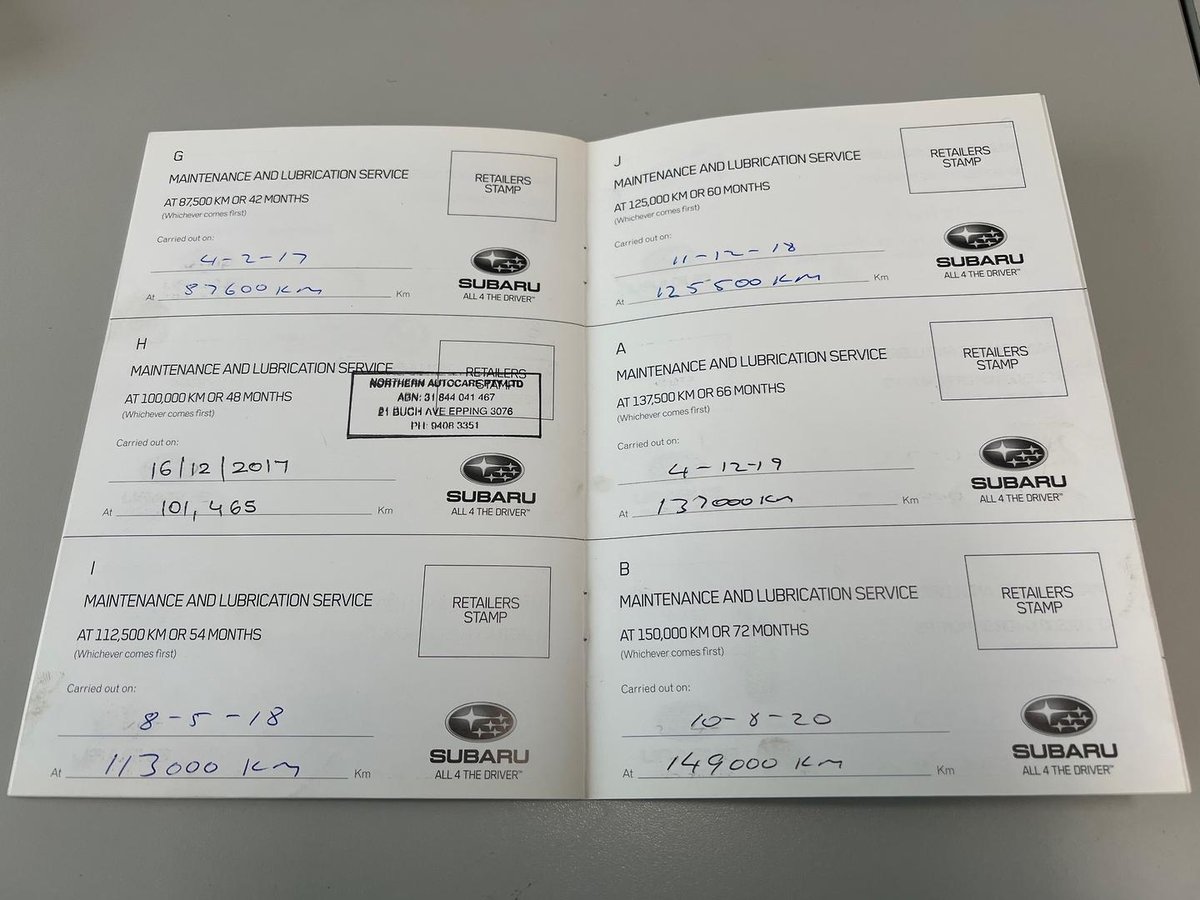 G
MAINTENANCE AND LUBRICATION SERVICE
AT 87,500 KM OR 42 MONTHS
(Whichever comes first)
RETAILERS
STAMP
Carried out on:
4-2-17
At 87600 Km Km
SUBARU
ALL 4 THE DRIVER™
H
MAINTENANCE AND LUBRICATION SERVICE
AT 100,000 KM OR 48 MONTHS
(Whichever comes first)
RETAILERS
STAMP
NORTHERN AUTOCARE PTY LTD
ABN: 31 844 041 467
21 BUCH AVE EPPING 3076
PH: 9408 3351
Carried out on:
16/12/2017
At 101,465 Km
SUBARU
ALL 4 THE DRIVER™
I
MAINTENANCE AND LUBRICATION SERVICE
AT 112,500 KM OR 54 MONTHS
(Whichever comes first)
RETAILERS
STAMP
Carried out on:
8-5-18
At 113000 Km Km
SUBARU
ALL 4 THE DRIVER™
J
MAINTENANCE AND LUBRICATION SERVICE
AT 125,000 KM OR 60 MONTHS
(Whichever comes first)
RETAILERS
STAMP
Carried out on:
11-12-18
At 125500 Km Km
SUBARU
ALL 4 THE DRIVER™
A
MAINTENANCE AND LUBRICATION SERVICE
AT 137,500 KM OR 66 MONTHS
(Whichever comes first)
RETAILERS
STAMP
Carried out on:
4-12-19
At 137000 Km Km
SUBARU
ALL 4 THE DRIVER™
B
MAINTENANCE AND LUBRICATION SERVICE
AT 150,000 KM OR 72 MONTHS
(Whichever comes first)
RETAILERS
STAMP
Carried out on:
10-8-20
At 149000 Km Km
SUBARU
ALL 4 THE DRIVER™